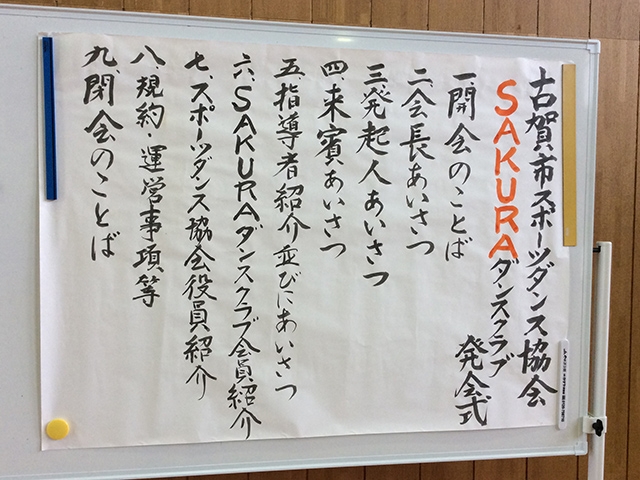 古賀市スポーツダンス協会
SAKURAダンスクラブ
発会式
一、開会のことば
二、会長あいさつ
三、発起人あいさつ
四、来賓あいさつ
五、指導者紹介並びにあいさつ
六、SAKURAダンスクラブ会員紹介
七、スポーツダンス協会役員紹介
八、規約・運営事項等
九、閉会のことば